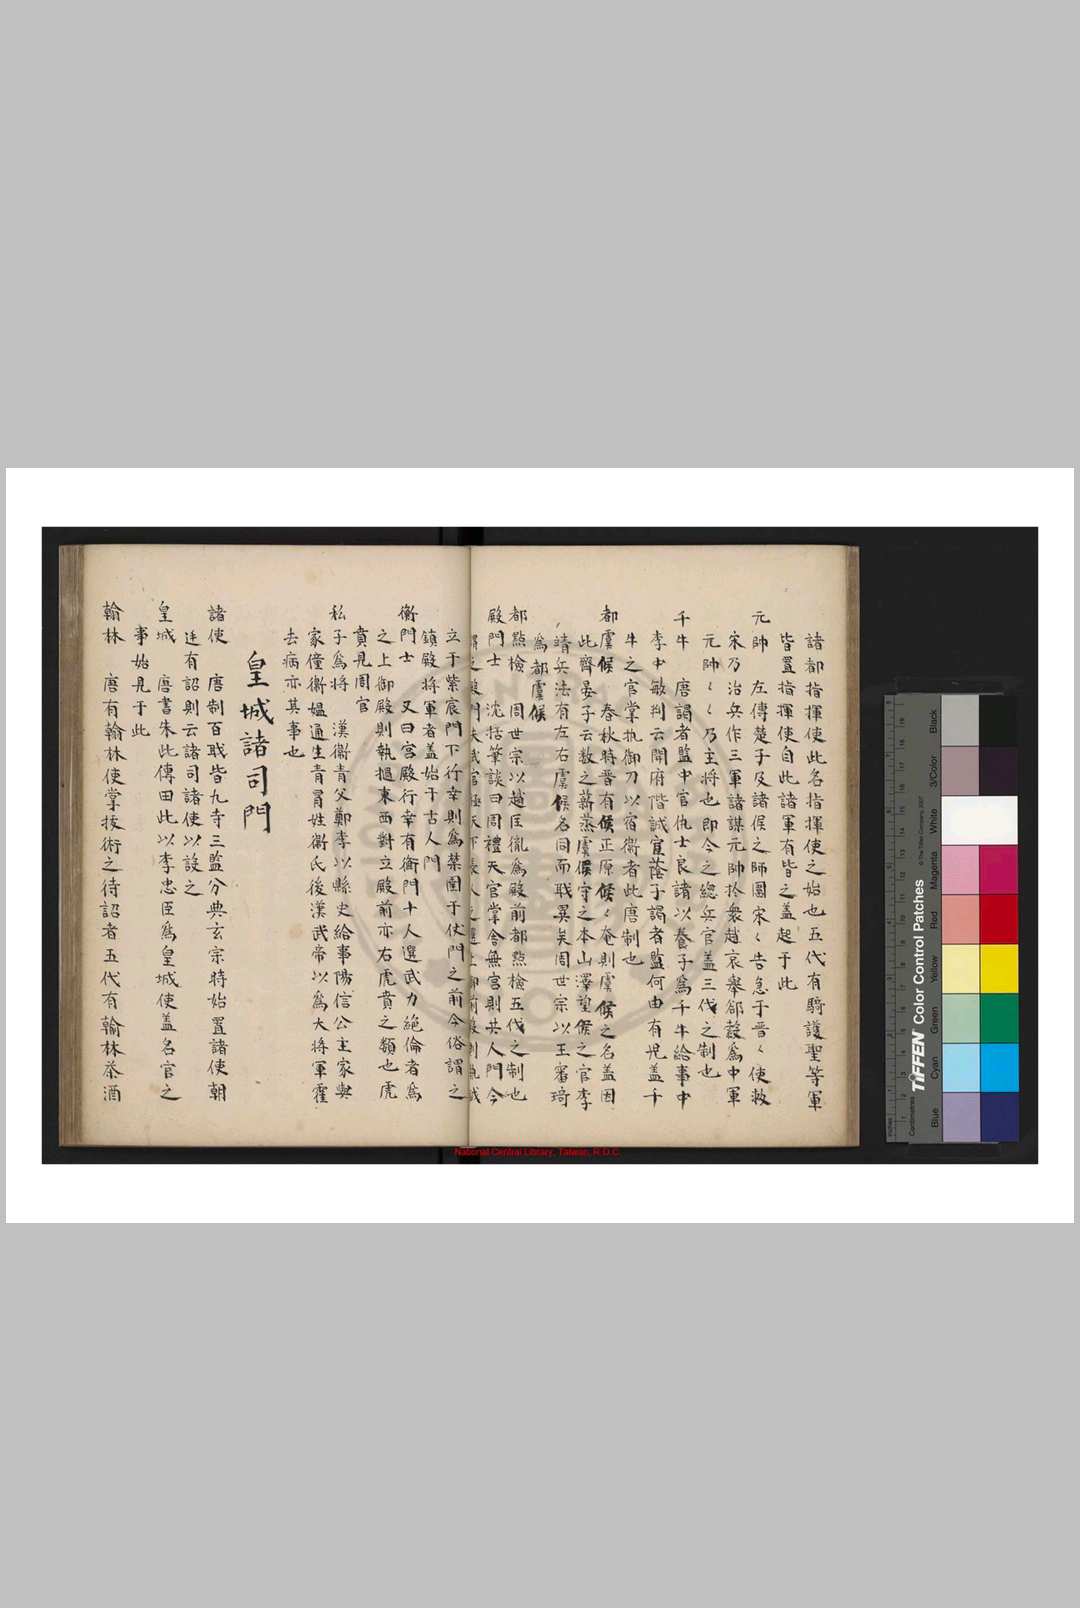 諸都指揮使此名指揮使之始也五代有騎護聖等軍
皆置指揮使自此諸軍有皆之盖起于此
元帥 左傳楚子及諸侯之師圍宋〻告急于晋〻使救
宋乃治兵作三軍諸謀元帥扵衆趙衰舉郤縠為中軍
元帥〻〻乃主将也即今之總兵官盖三代之制也
千牛 唐謁者監中官仇士良諸以養子為千牛給事中
李中敏判云開府階誠宜蔭子謁者監何由有児盖千
牛之官掌执御刀以宿衞者此唐制也
都虞候 春秋時晋有候正原候〻奄則虞候之名盖因
此齊晏子云数之薪蒸虞候守之本山澤望候之官李
靖兵法有左右虞候名同而职異矣周世宗以王審琦
為都虞候
都㸃檢 周世宗以趙匡胤為殿前都㸃檢五代之制也
殿門士 沈括筆談曰周禮天官掌舍無宫則共人門今
立于紫宸門下行幸則為禁圍于仗門之前今俗謂之
鎮殿将軍者盖始于古人門
衡門士 又曰宫殿行幸有衡門十人選武力絶倫者為
之上御殿則執檛東西對立殿前亦右虎賁之類也虎
賁見周官
私子為将 漢衞青父鄭季以縣史給事陽信公主家與
家僮衞媪通生青冒姓衞氏後漢武帝以為大将軍霍
去病亦其事也
皇城諸司門
諸使 唐制百职皆九寺三監分典玄宗時始置諸使朝
廷有詔則云諸司諸使以設之
皇城 唐書朱此傳田此以李忠臣為皇城使盖名官之
事始見于此
翰林 唐有翰林使掌技術之待詔者五代有翰林茶酒
National Central Library, Taiwan, R.O.C.
TIFFEN Color Control Patches
© The Tiffen Company, 2007
Centimetres
Inches
Blue
Cyan
Green
Yellow
Red
Magenta
White
3/Color
Black